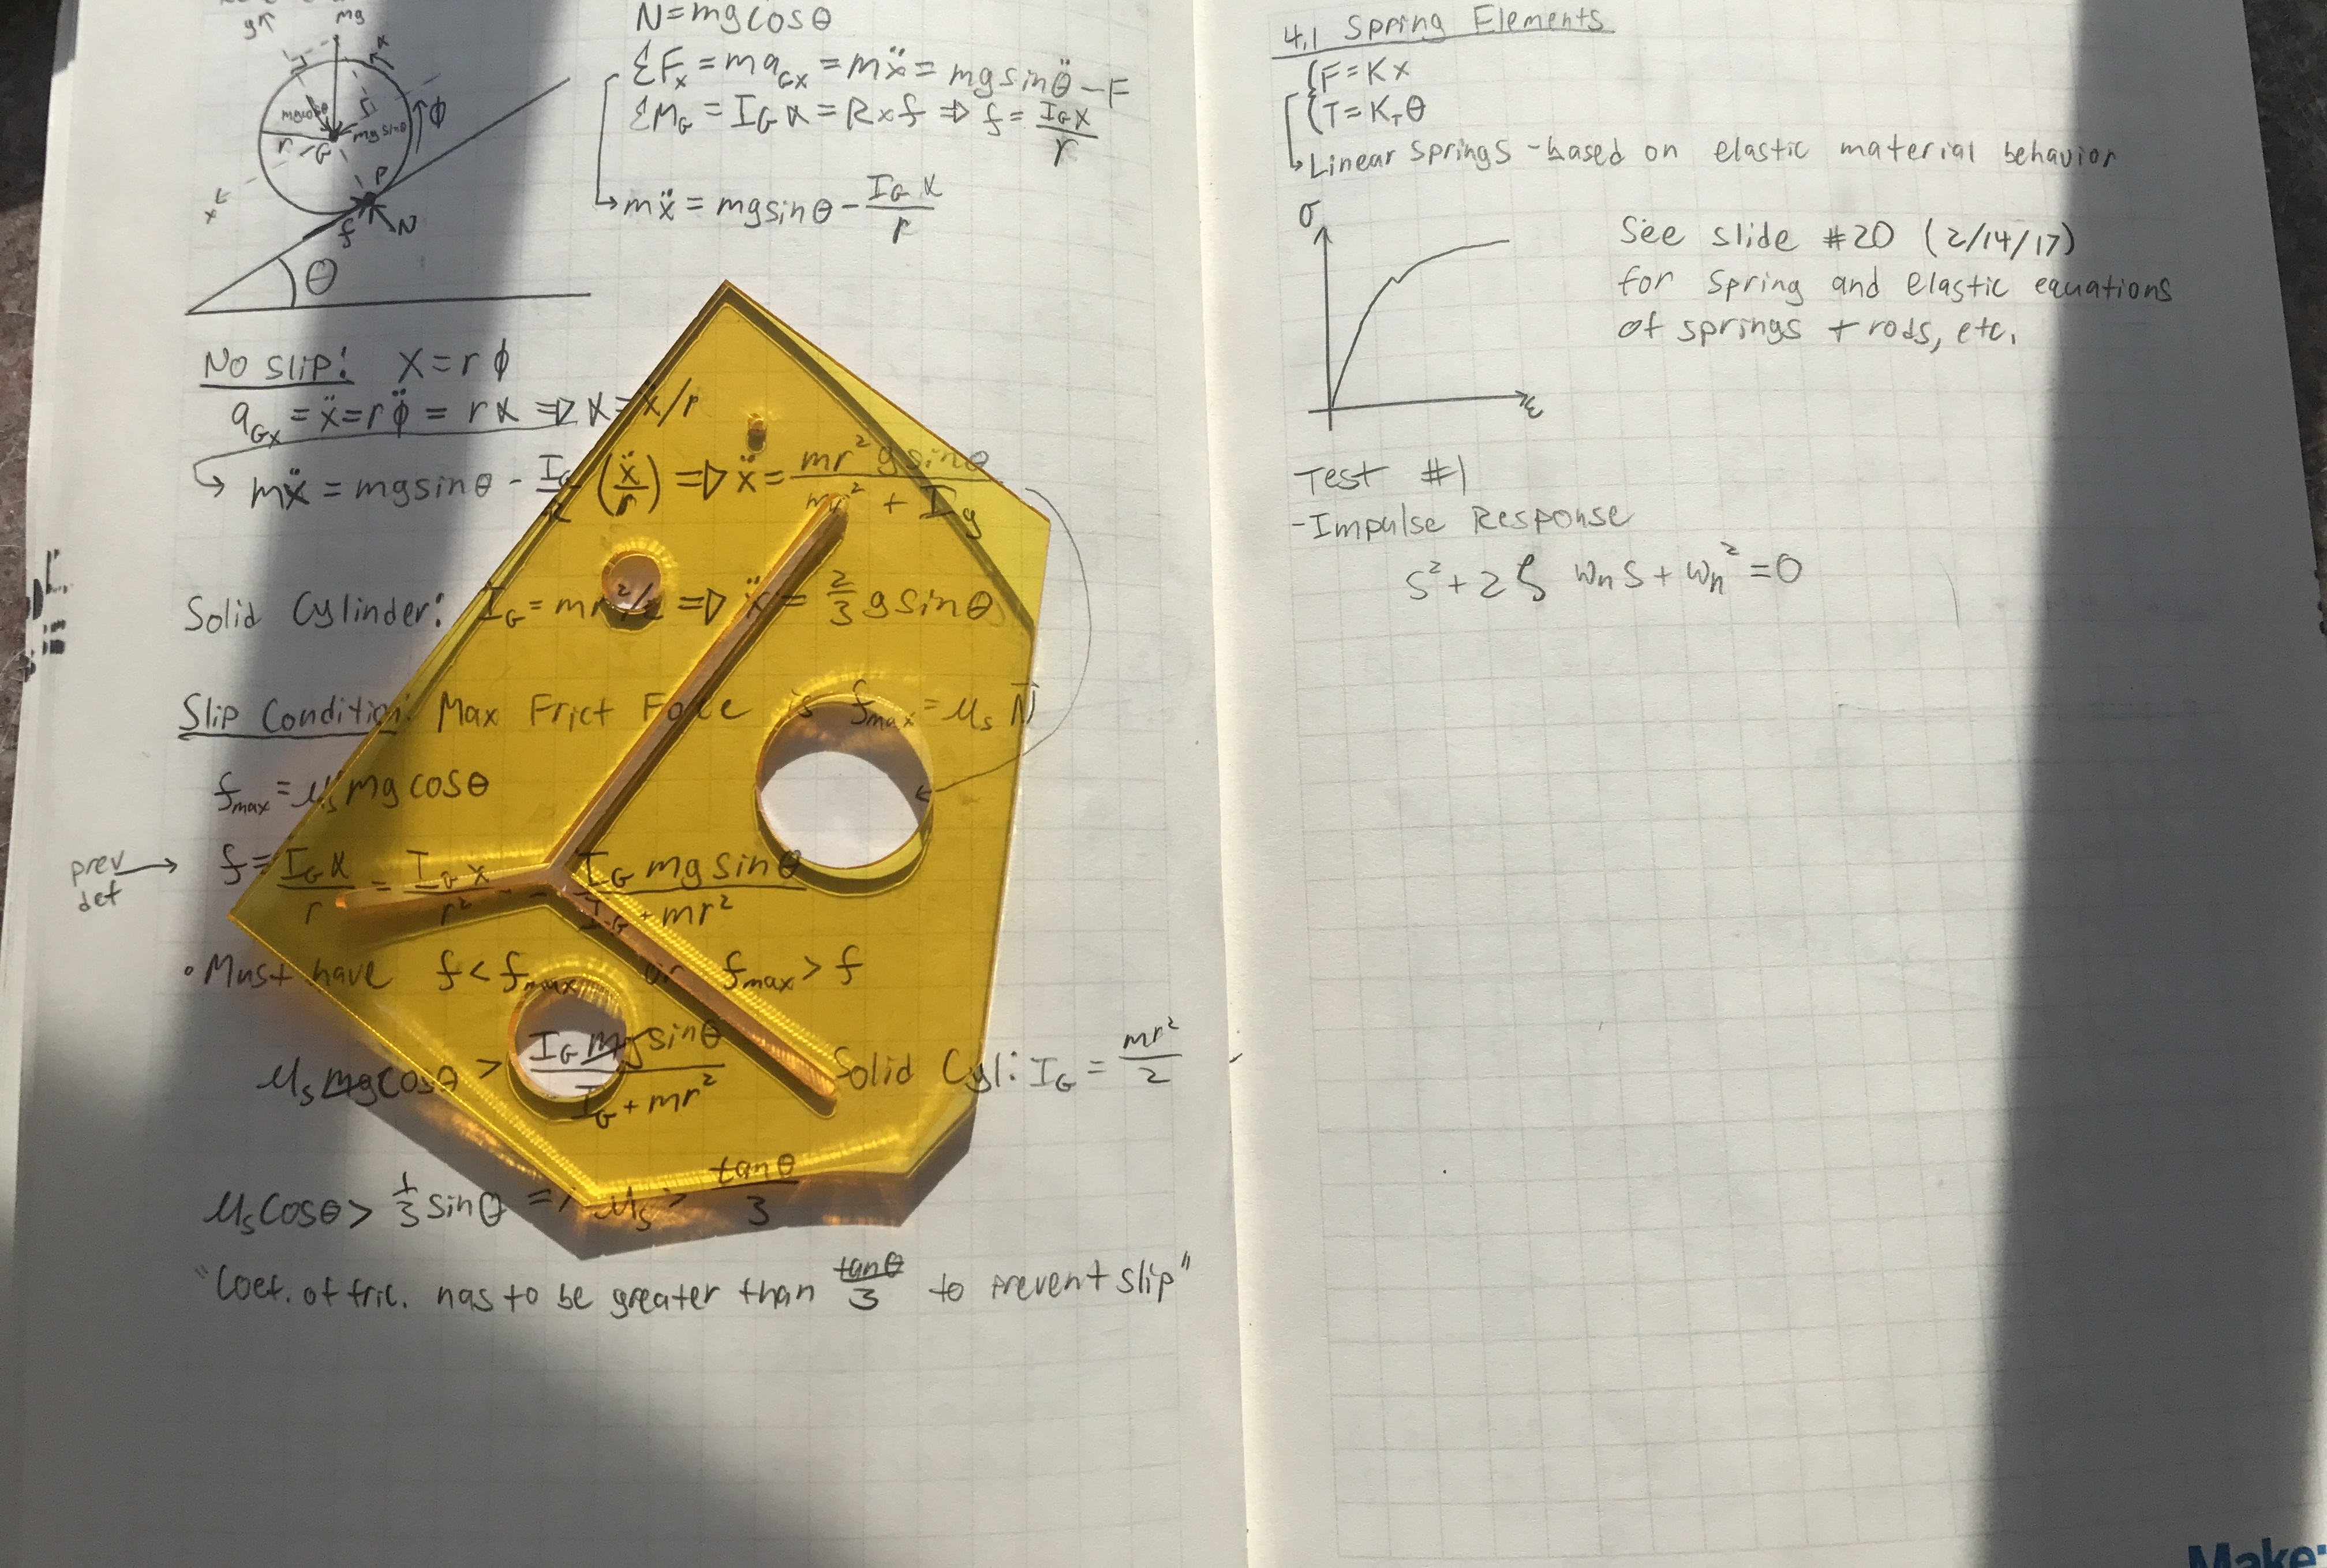 mg
N=mgcosθ
ΣF_x = ma_Gx = mẍ = mgsinθ̈ - F
ΣM_G = I_G α = R×f ⇒ f = I_G α / r
mgcosθ
mgsinθ
ϕ
r
G
P
x
f
N
θ
mẍ = mgsinθ - I_G α / r
No slip! x = rϕ
a_Gx = ẍ = rϕ̈ = rα ⇒ α = ẍ/r
mẍ = mgsinθ - I_G/r (ẍ/r) ⇒ ẍ = mr²gsinθ / mr² + I_g
Solid Cylinder: I_G = mr²/2 ⇒ ẍ = 2/3 gsinθ
Slip Condition: Max Frict Force is f_max = μ_s N
f_max = μ_s mg cosθ
prev det → f = I_G α / r = I_G ẍ / r² = I_G mg sinθ / I_G + mr²
• Must have f < f_max or f_max > f
μ_s mg cosθ > I_G mg sinθ / I_G + mr² Solid Cyl: I_G = mr² / 2
μ_s cosθ > 1/3 sinθ ⇒ μ_s > tanθ / 3
"Coef. of fric. has to be greater than tanθ / 3 to prevent slip"
4.1 Spring Elements
F = Kx
T = K_T θ
Linear springs - based on elastic material behavior
σ
ε
See slide #20 (2/14/17)
for spring and elastic equations
of springs + rods, etc.
Test #1
- Impulse Response
s² + 2ζ ω_n s + ω_n² = 0
Make: